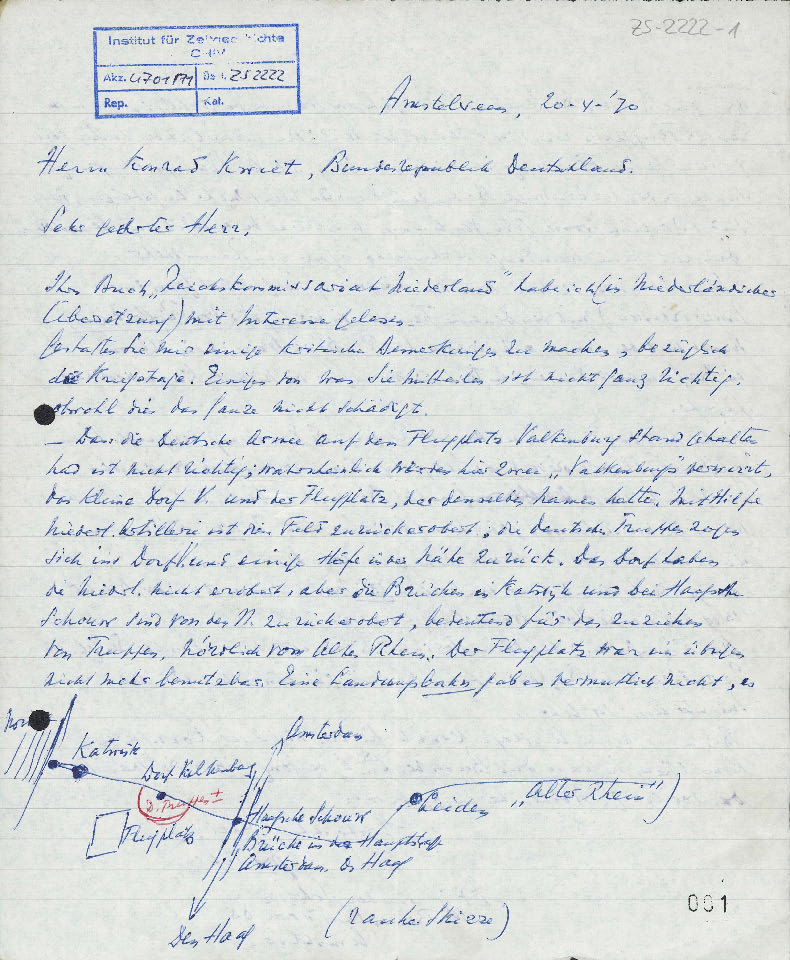 ZS-2222-1
Institut für Zeitgeschichte
Akz. 4701/71 Best. ZS 2222
Rep. Kat.
Amstelveen, 20-4-'70
Herrn Konrad Kwiet, Bundesrepublik Deutschland.
Sehr geehrter Herr,
Ihr Buch „Reichskommissariat Niederland" habe ich (in Niederländischer
Übersetzung) mit Interesse gelesen.
Gestatten Sie mir einige kritische Bemerkungen zu machen, bezüglich
die Kriegstage. Einiges von was Sie mitteilen ist nicht ganz richtig,
obwohl dies das ganze nicht schädigt.
– Dass die Deutsche Armee auf dem Flugplatz Valkenburg Stand gehalten
hat ist nicht richtig; wahrsheinlich werden hier zwei „Valkenburgs" verwirrt,
das kleine Dorf V. und der Flugplatz, der denselben Namen hatte. Mit Hilfe
Niederl. Artillerie ist das Feld zurückerobert; die deutsche Truppen zogen
sich ins Dorf und einige Höfe in der Nähe zurück. Das Dorf haben
die Niederl. nicht erobert, aber die Brücken in Katwijk und bei Haagsche
Schouw sind von den N. zurückerobert, bedeutend für das zuziehen
von Truppen, nördlich vom Alten Rhein. Der Flugplatz war im übrigen
nicht mehr benutzbar. Eine Landungsbahn gab es vermutlich nicht, es
Katwijk
Amsterdam
Dorf Valkenburg
D. Truppen
Flugplatz
Haagsche Schouw
Brücke in der Hauptstrasse
Amsterdam. Den Haag
Leiden „Alter Rhein")
Den Haag
(ranke Skizze)
001